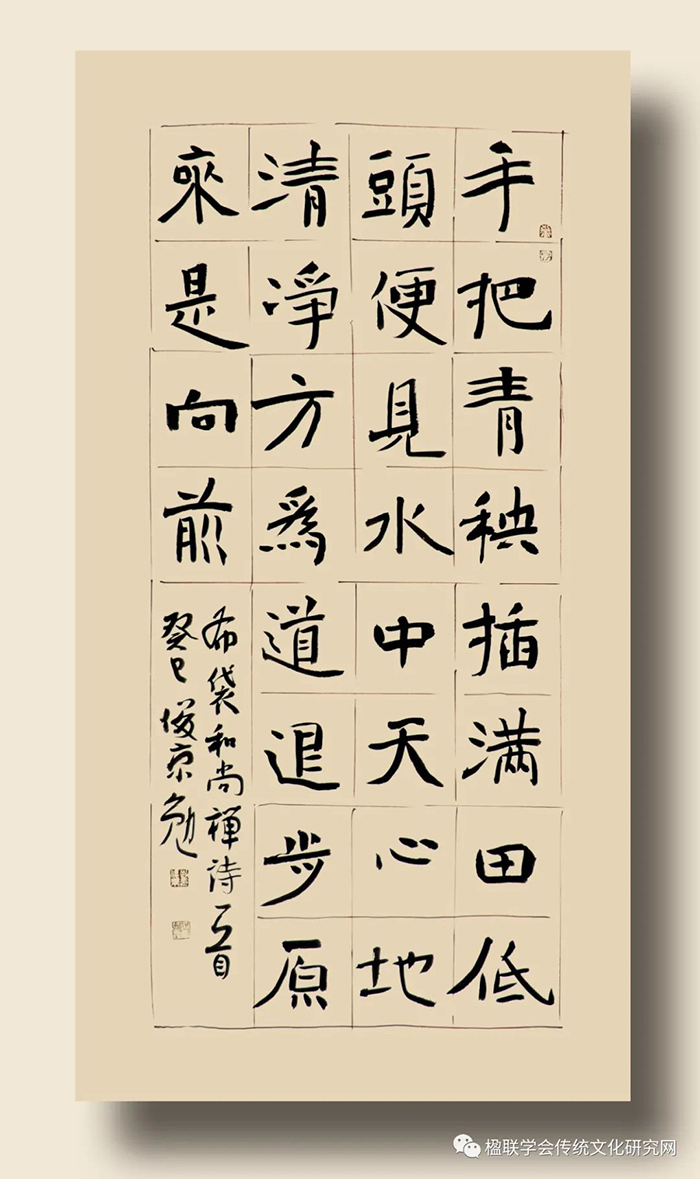 手把青秧插满田低
頭便見水中天心地
清淨方爲道退步原
來是向前
布袋和尚禪詩一首
癸巳俊京勉
楹联学会传统文化研究网